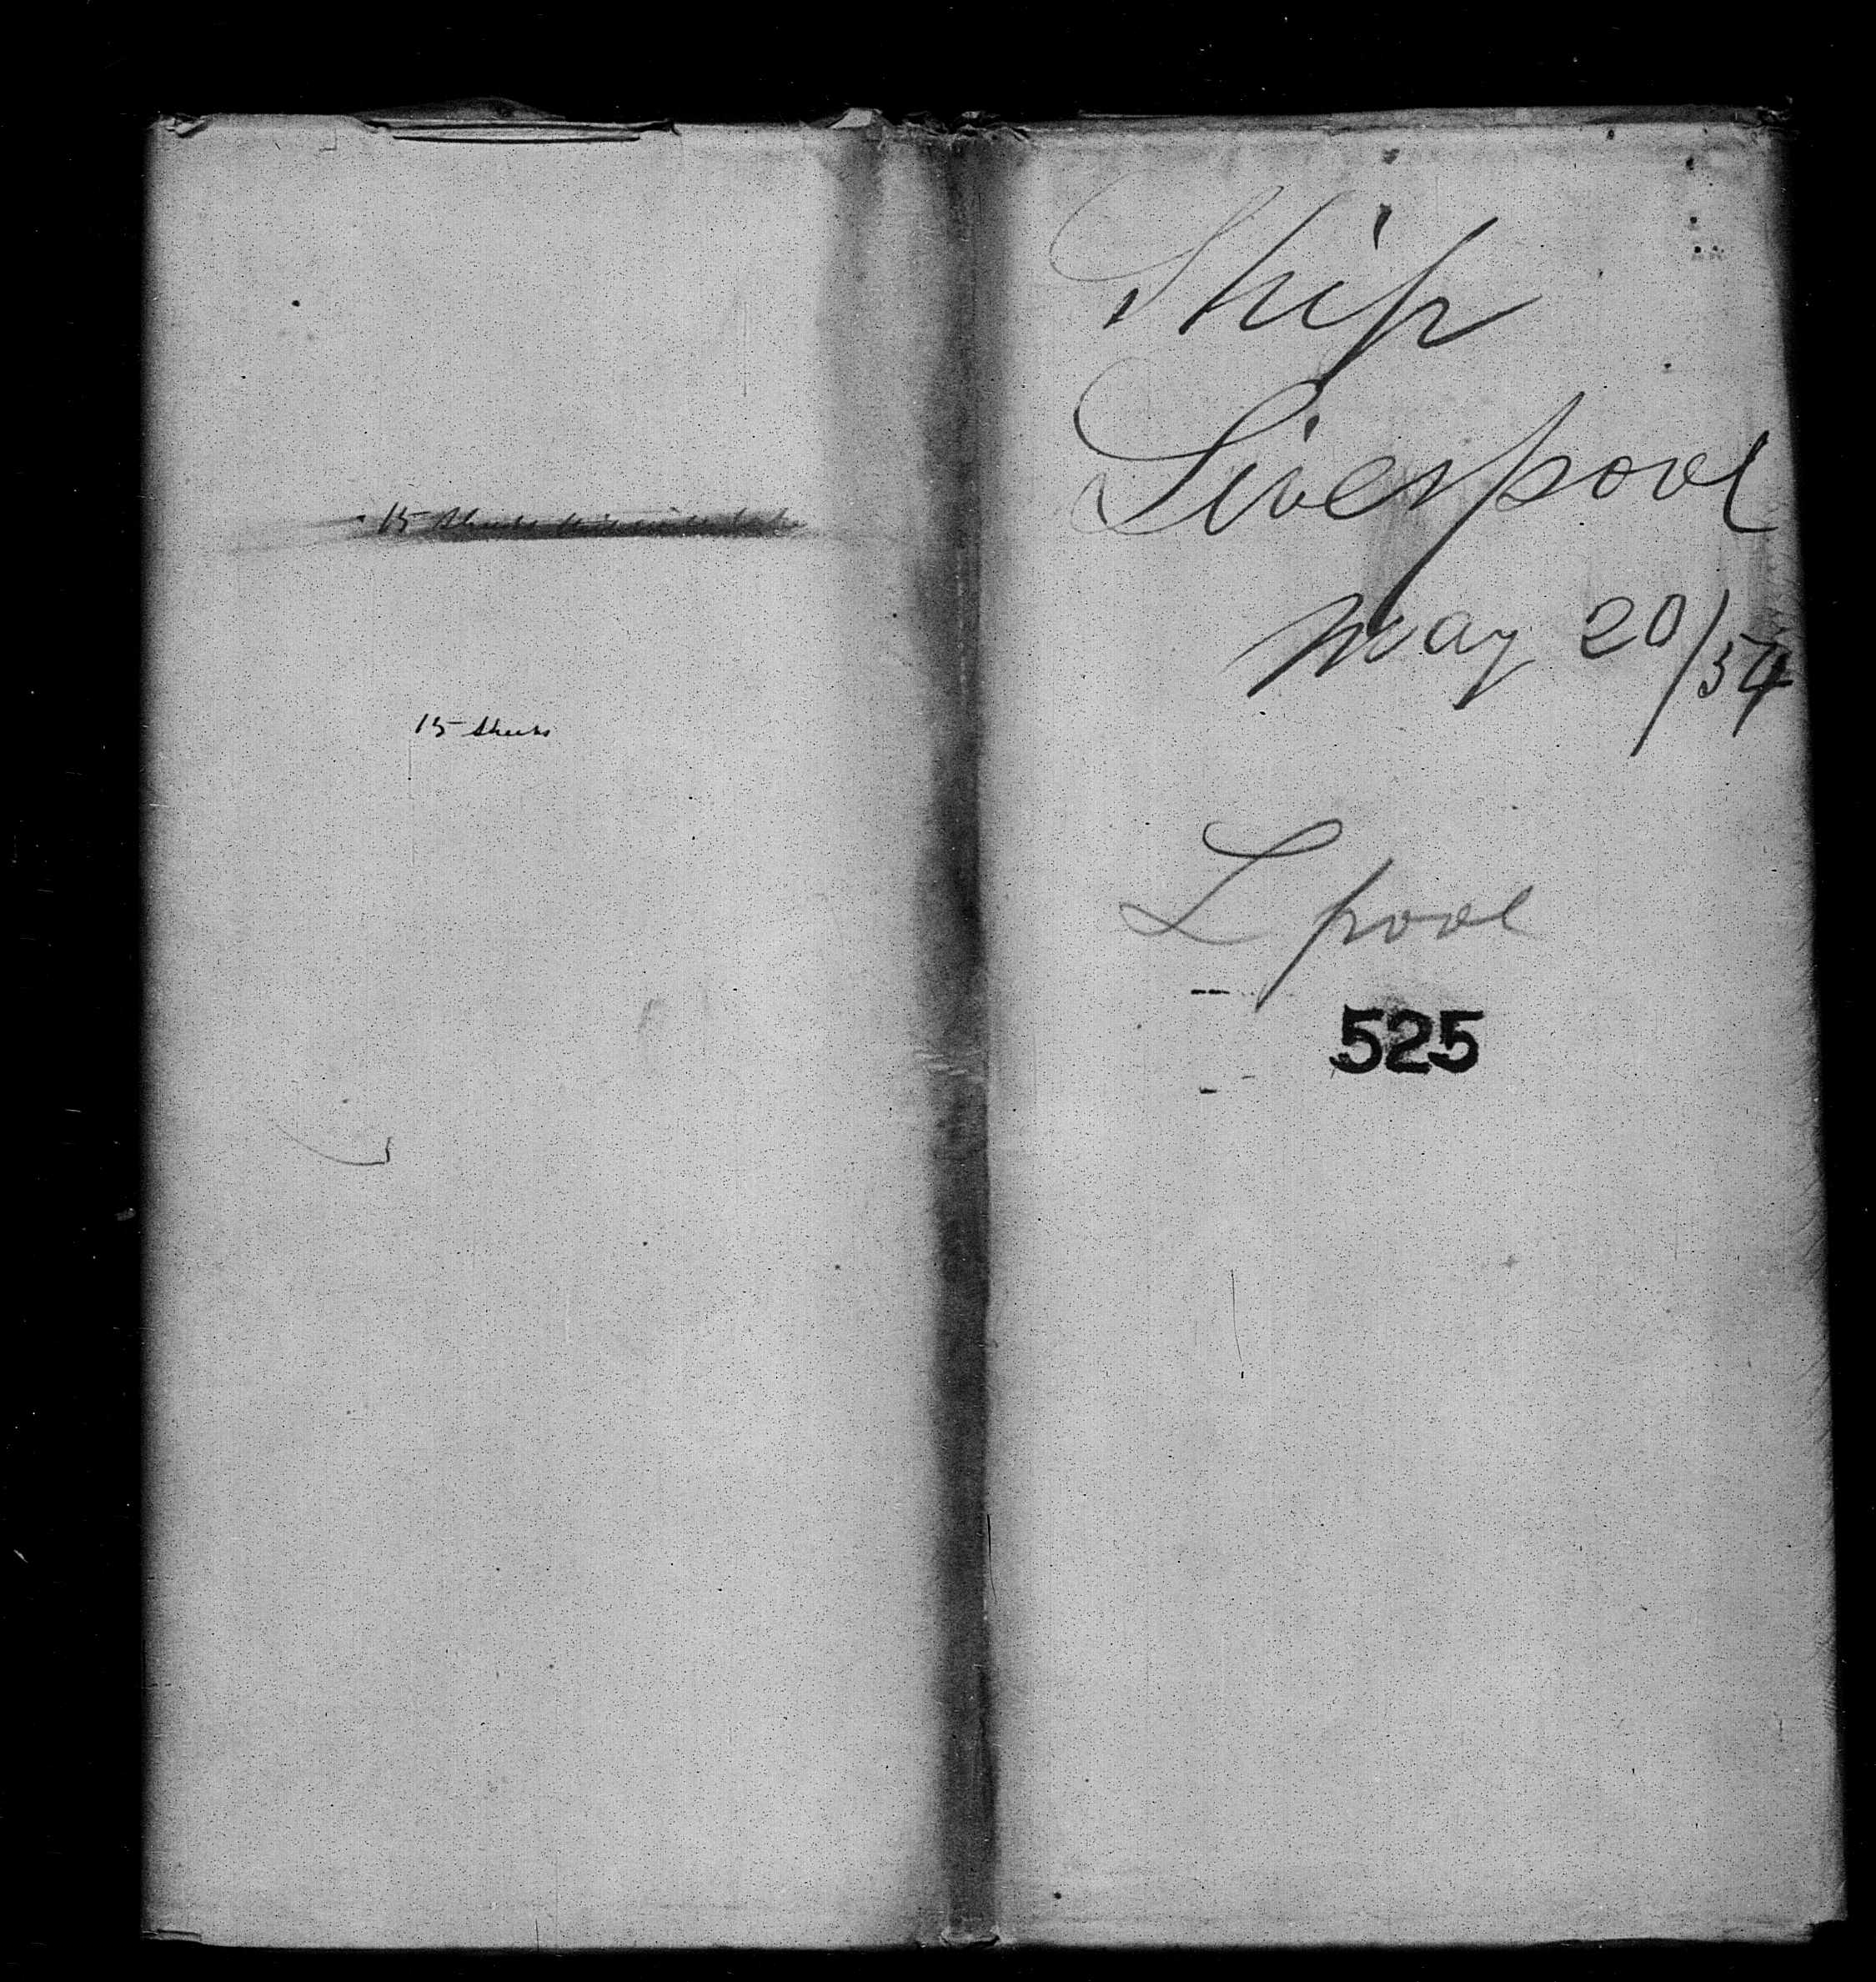 15 Sheets
15 Sheets
Ship
Liverpool
May 20/54
L pool
525